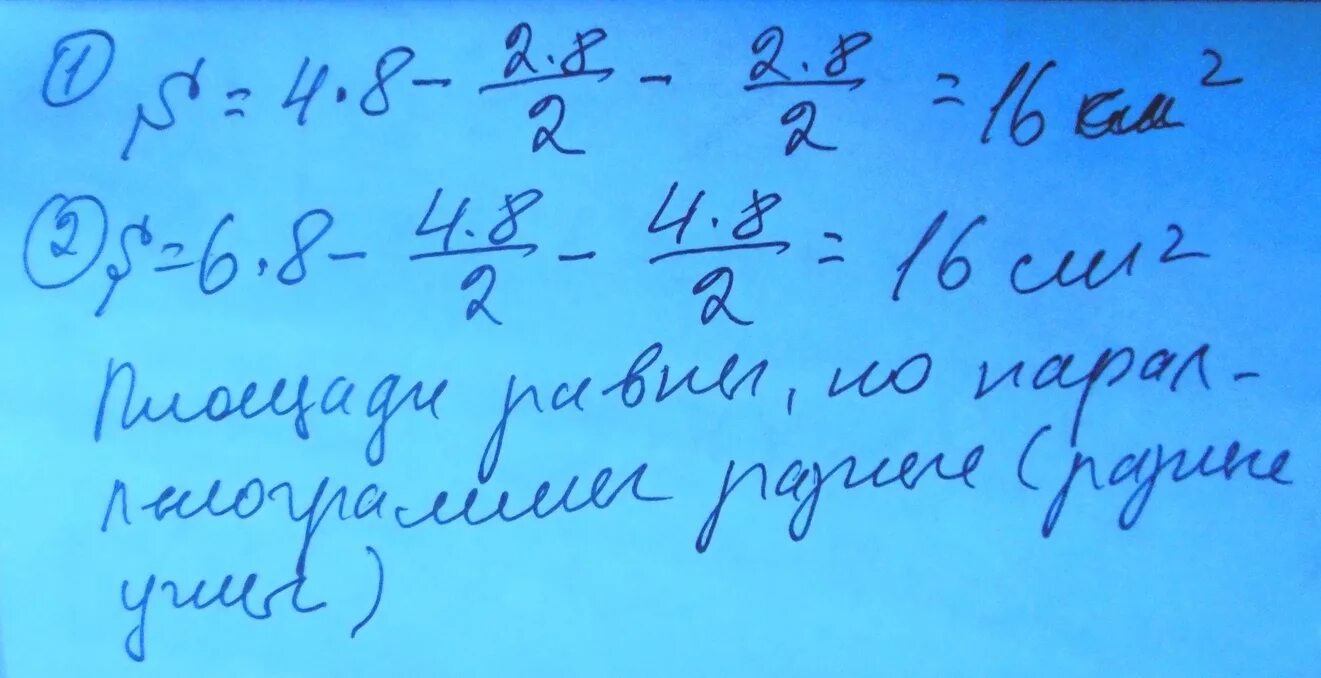 ① S = 4·8 - 2·8/2 - 2·8/2 = 16 см²
② S = 6·8 - 4·8/2 - 4·8/2 = 16 см²
Площади равны, но парал-
лелограммы разные (разные
углы)